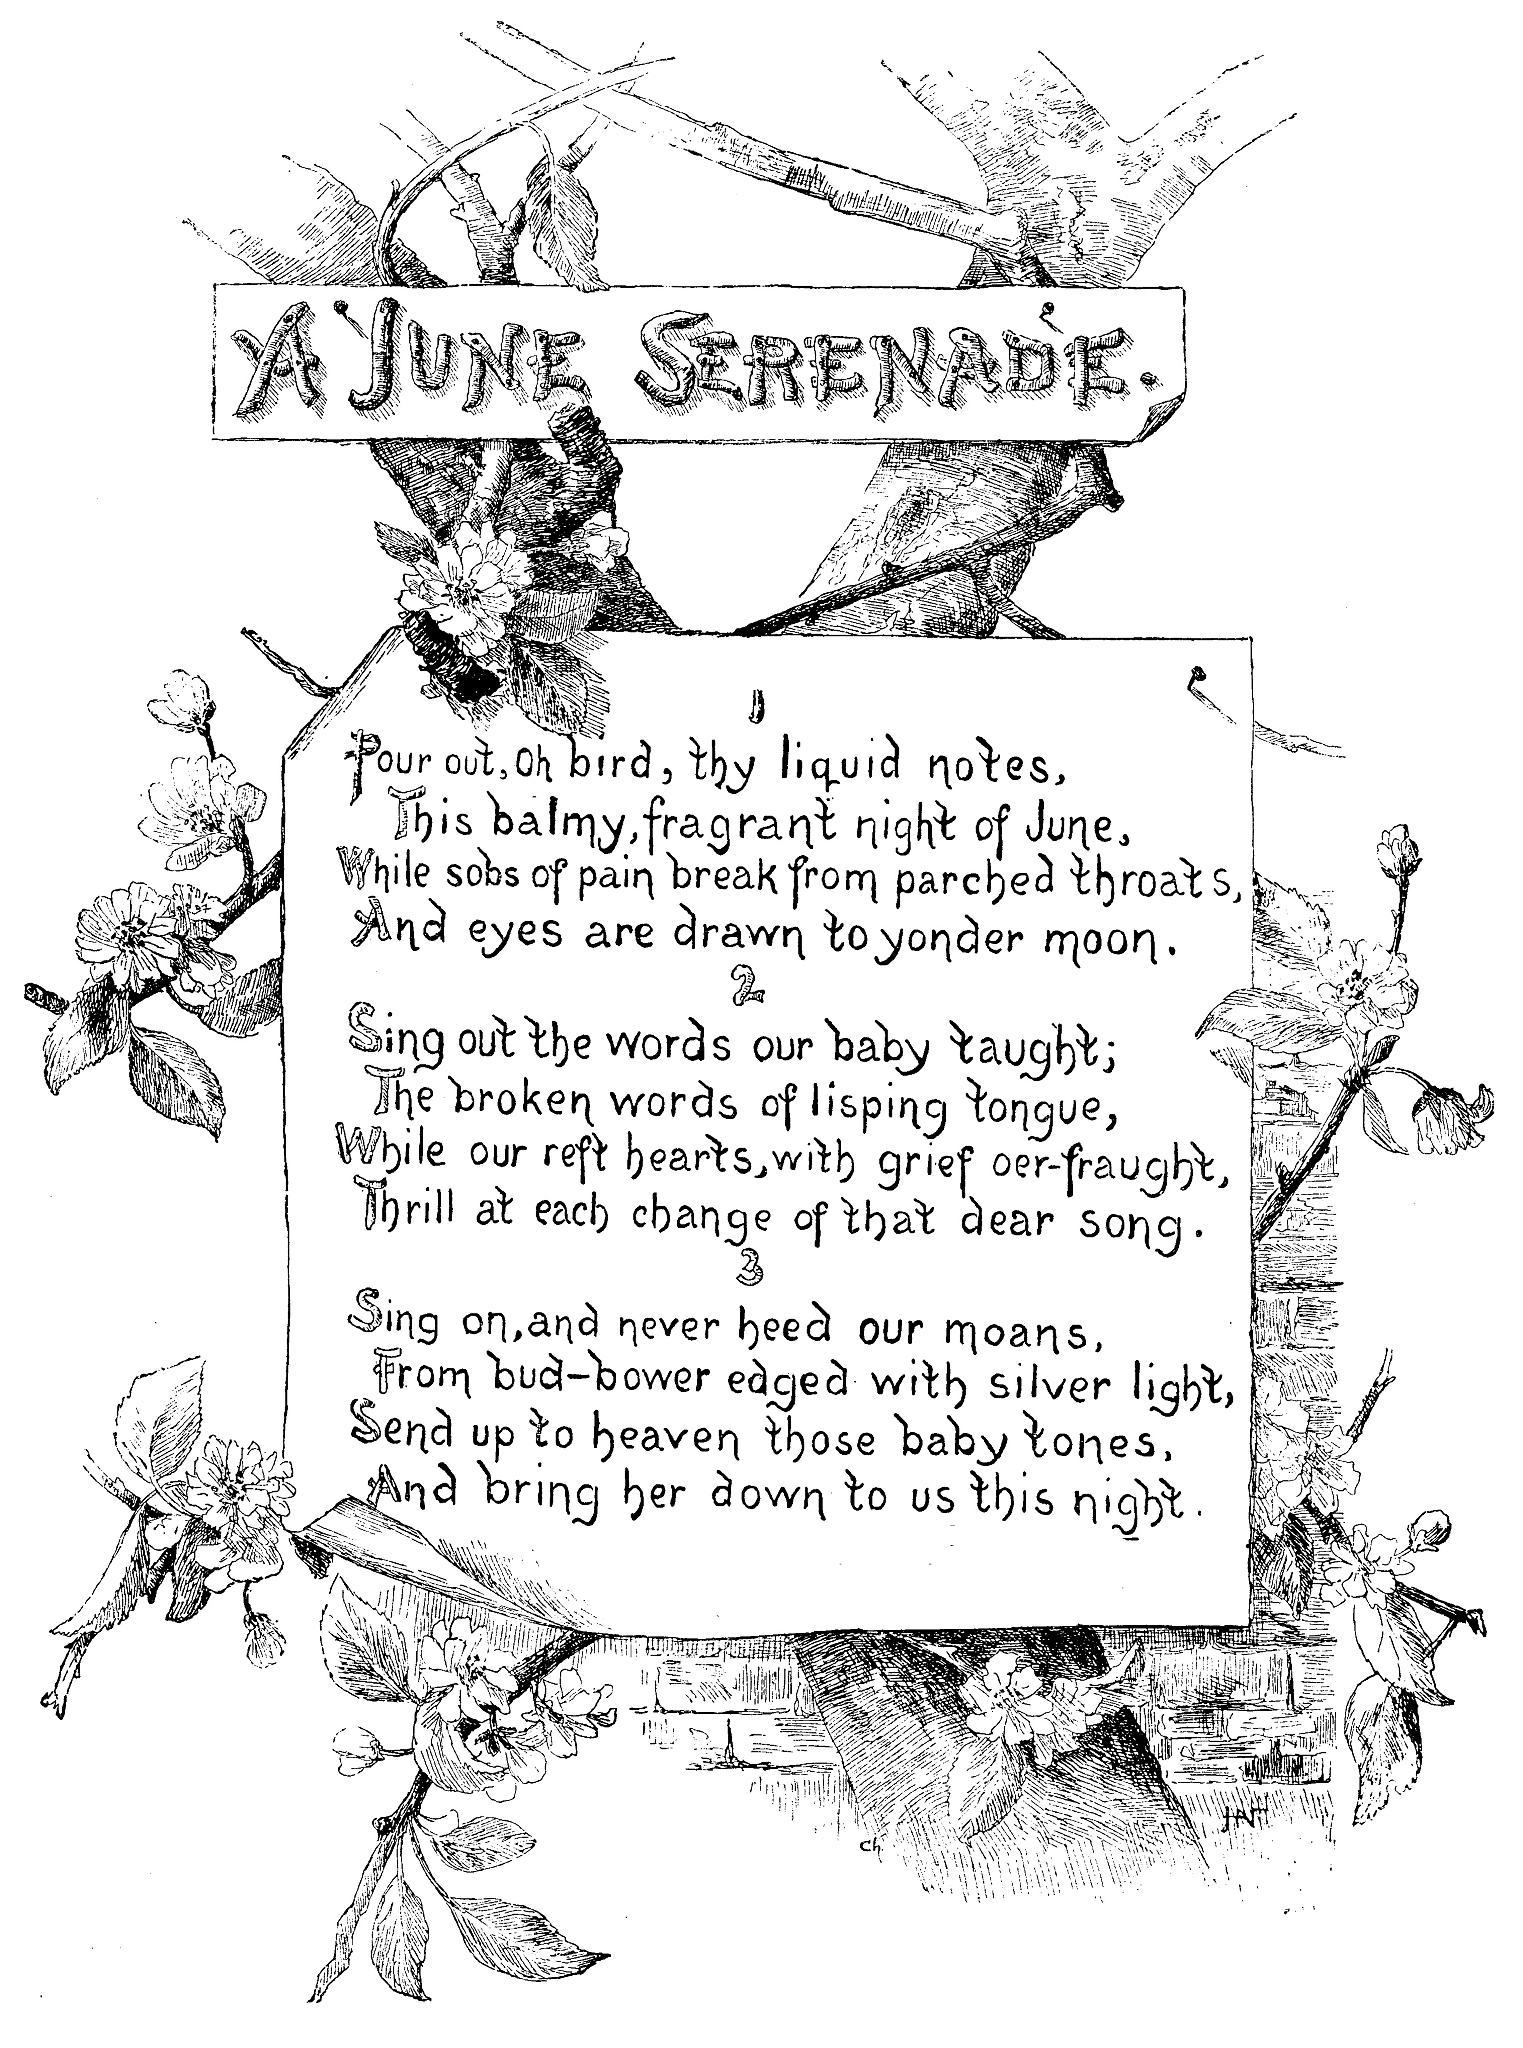 A JUNE SERENADE.
1
Pour out, Oh bird, thy liquid notes,
This balmy, fragrant night of June,
While sobs of pain break from parched throats,
And eyes are drawn to yonder moon.
2
Sing out the words our baby taught;
The broken words of lisping tongue,
While our reft hearts, with grief oer-fraught,
Thrill at each change of that dear song.
3
Sing on, and never heed our moans,
From bud-bower edged with silver light,
Send up to heaven those baby tones,
And bring her down to us this night.
Ch